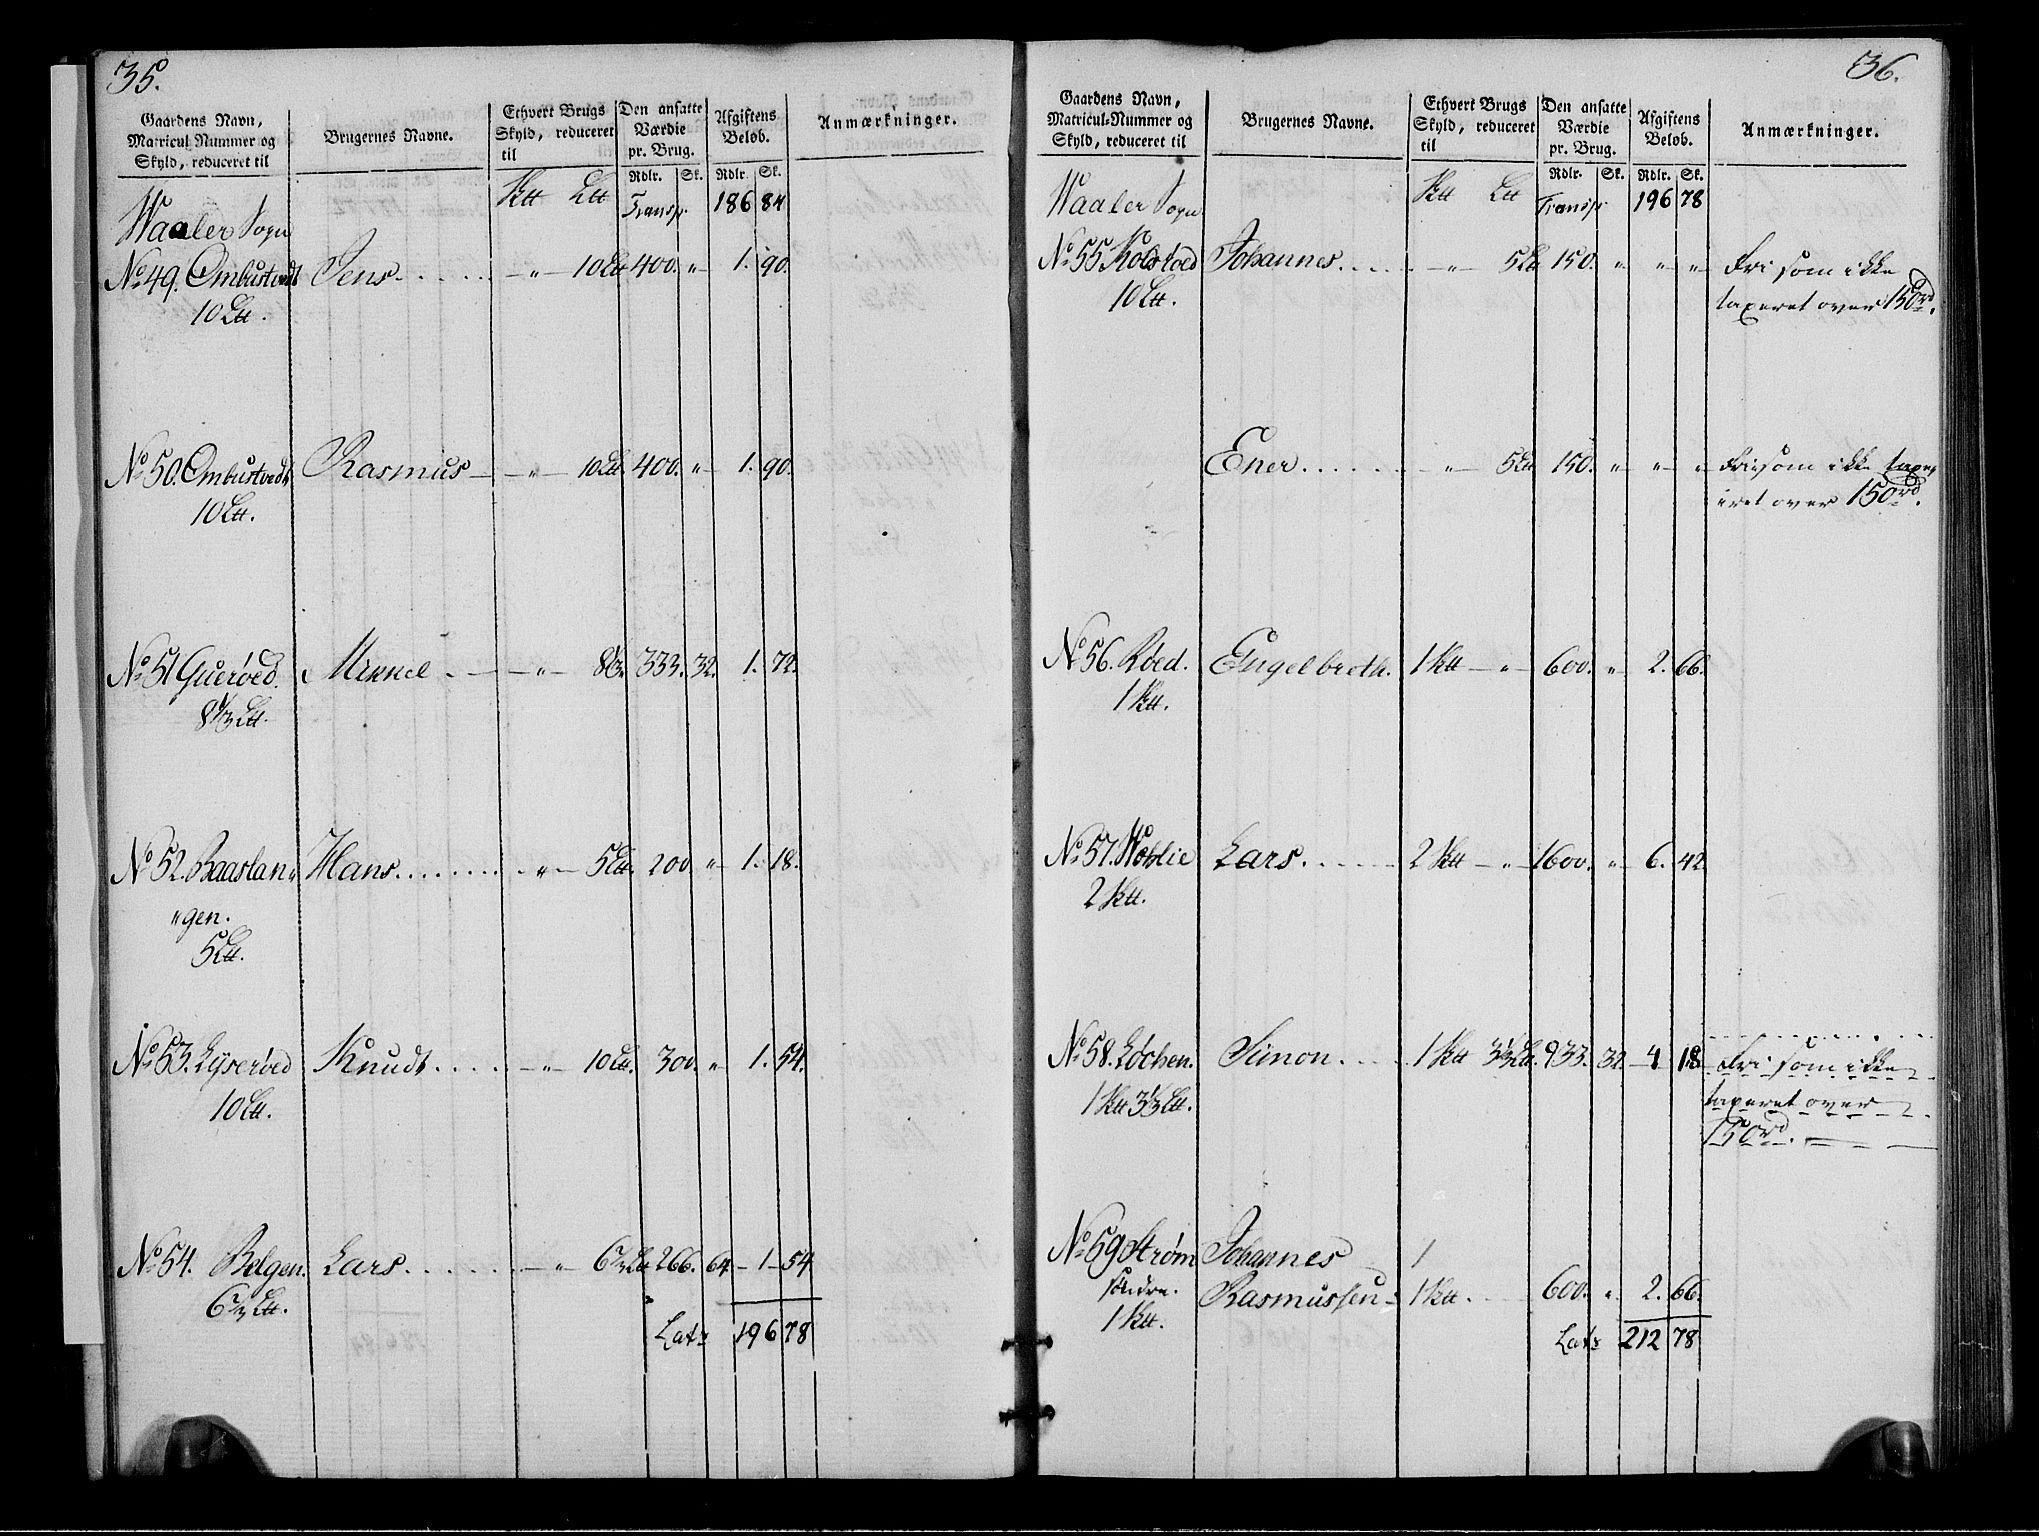 35.
Gaardens Navn, Matricul Nummer og Skyld, reduceret til | Brugernes Navne. | Ethvert Brugs Skyld, reduceret til | Den ansatte Værdie pr. Brug. | Afgiftens Beløb. | Anmærkninger.
Rdlr. Sk. Rdlr. Sk.
Waaler Sogn Ktt Ltt Transp. 186 84
No 49. Ombustvedt Jens 〃 10 Ltt 400. 〃 1. 90.
10 Ltt.
No 50. Ombustvedt Rasmus 〃 10 Ltt 400. 〃 1. 90.
10 Ltt.
No 51 Guerøed. Mikkel 〃 8 1/3. 333. 32. 1. 72.
8 1/3 Ltt.
No 52. Baastan〃 Hans 〃 5 Ltt. 200 〃 1. 18.
〃gen.
5 Ltt.
No 53. Lyserøed Knudt 〃 10 Ltt. 300. 〃 1. 54.
10 Ltt.
No 54. Belgen. Lars 〃 6 2/3 Ltt 266. 64 1 54
6 2/3 Ltt.
Lats 196 78
36.
Gaardens Navn, Matricul-Nummer og Skyld, reduceret til | Brugernes Navne. | Ethvert Brugs Skyld, reduceret til | Den ansatte Værdie pr. Brug. | Afgiftens Beløb. | Anmærkninger.
Rdlr. Sk. Rdlr. Sk.
Waaler Sogn Ktt Ltt Transp. 196 78
No 55 Kolstved Johannes 〃 5 Ltt 150. 〃 〃 〃 Fri som ikke
10 Ltt. taxeret over 150 rd.
Ener 〃 5 Ltt 150. 〃 〃 〃 Fri som ikke taxe〃
〃ret over 150 rd.
No 56. Røed. Engelbreth. 1 Ktt 〃 600. 〃 2. 66.
1 Ktt.
No 57. Lars 2 Ktt 〃 1600. 〃 6. 42
2 Ktt.
No 58. Løchen. Simon 1 Ktt 3 1/3 Ltt. 933. 32 4 18 Fri som ikke
1 Ktt 3 1/3 Ltt. taxeret over
150 rd.
No 59 Strøm Johannes 1
søndre. Rasmussen 1 Ktt. 600. 〃 2. 66.
1 Ktt.
Lats 212 78